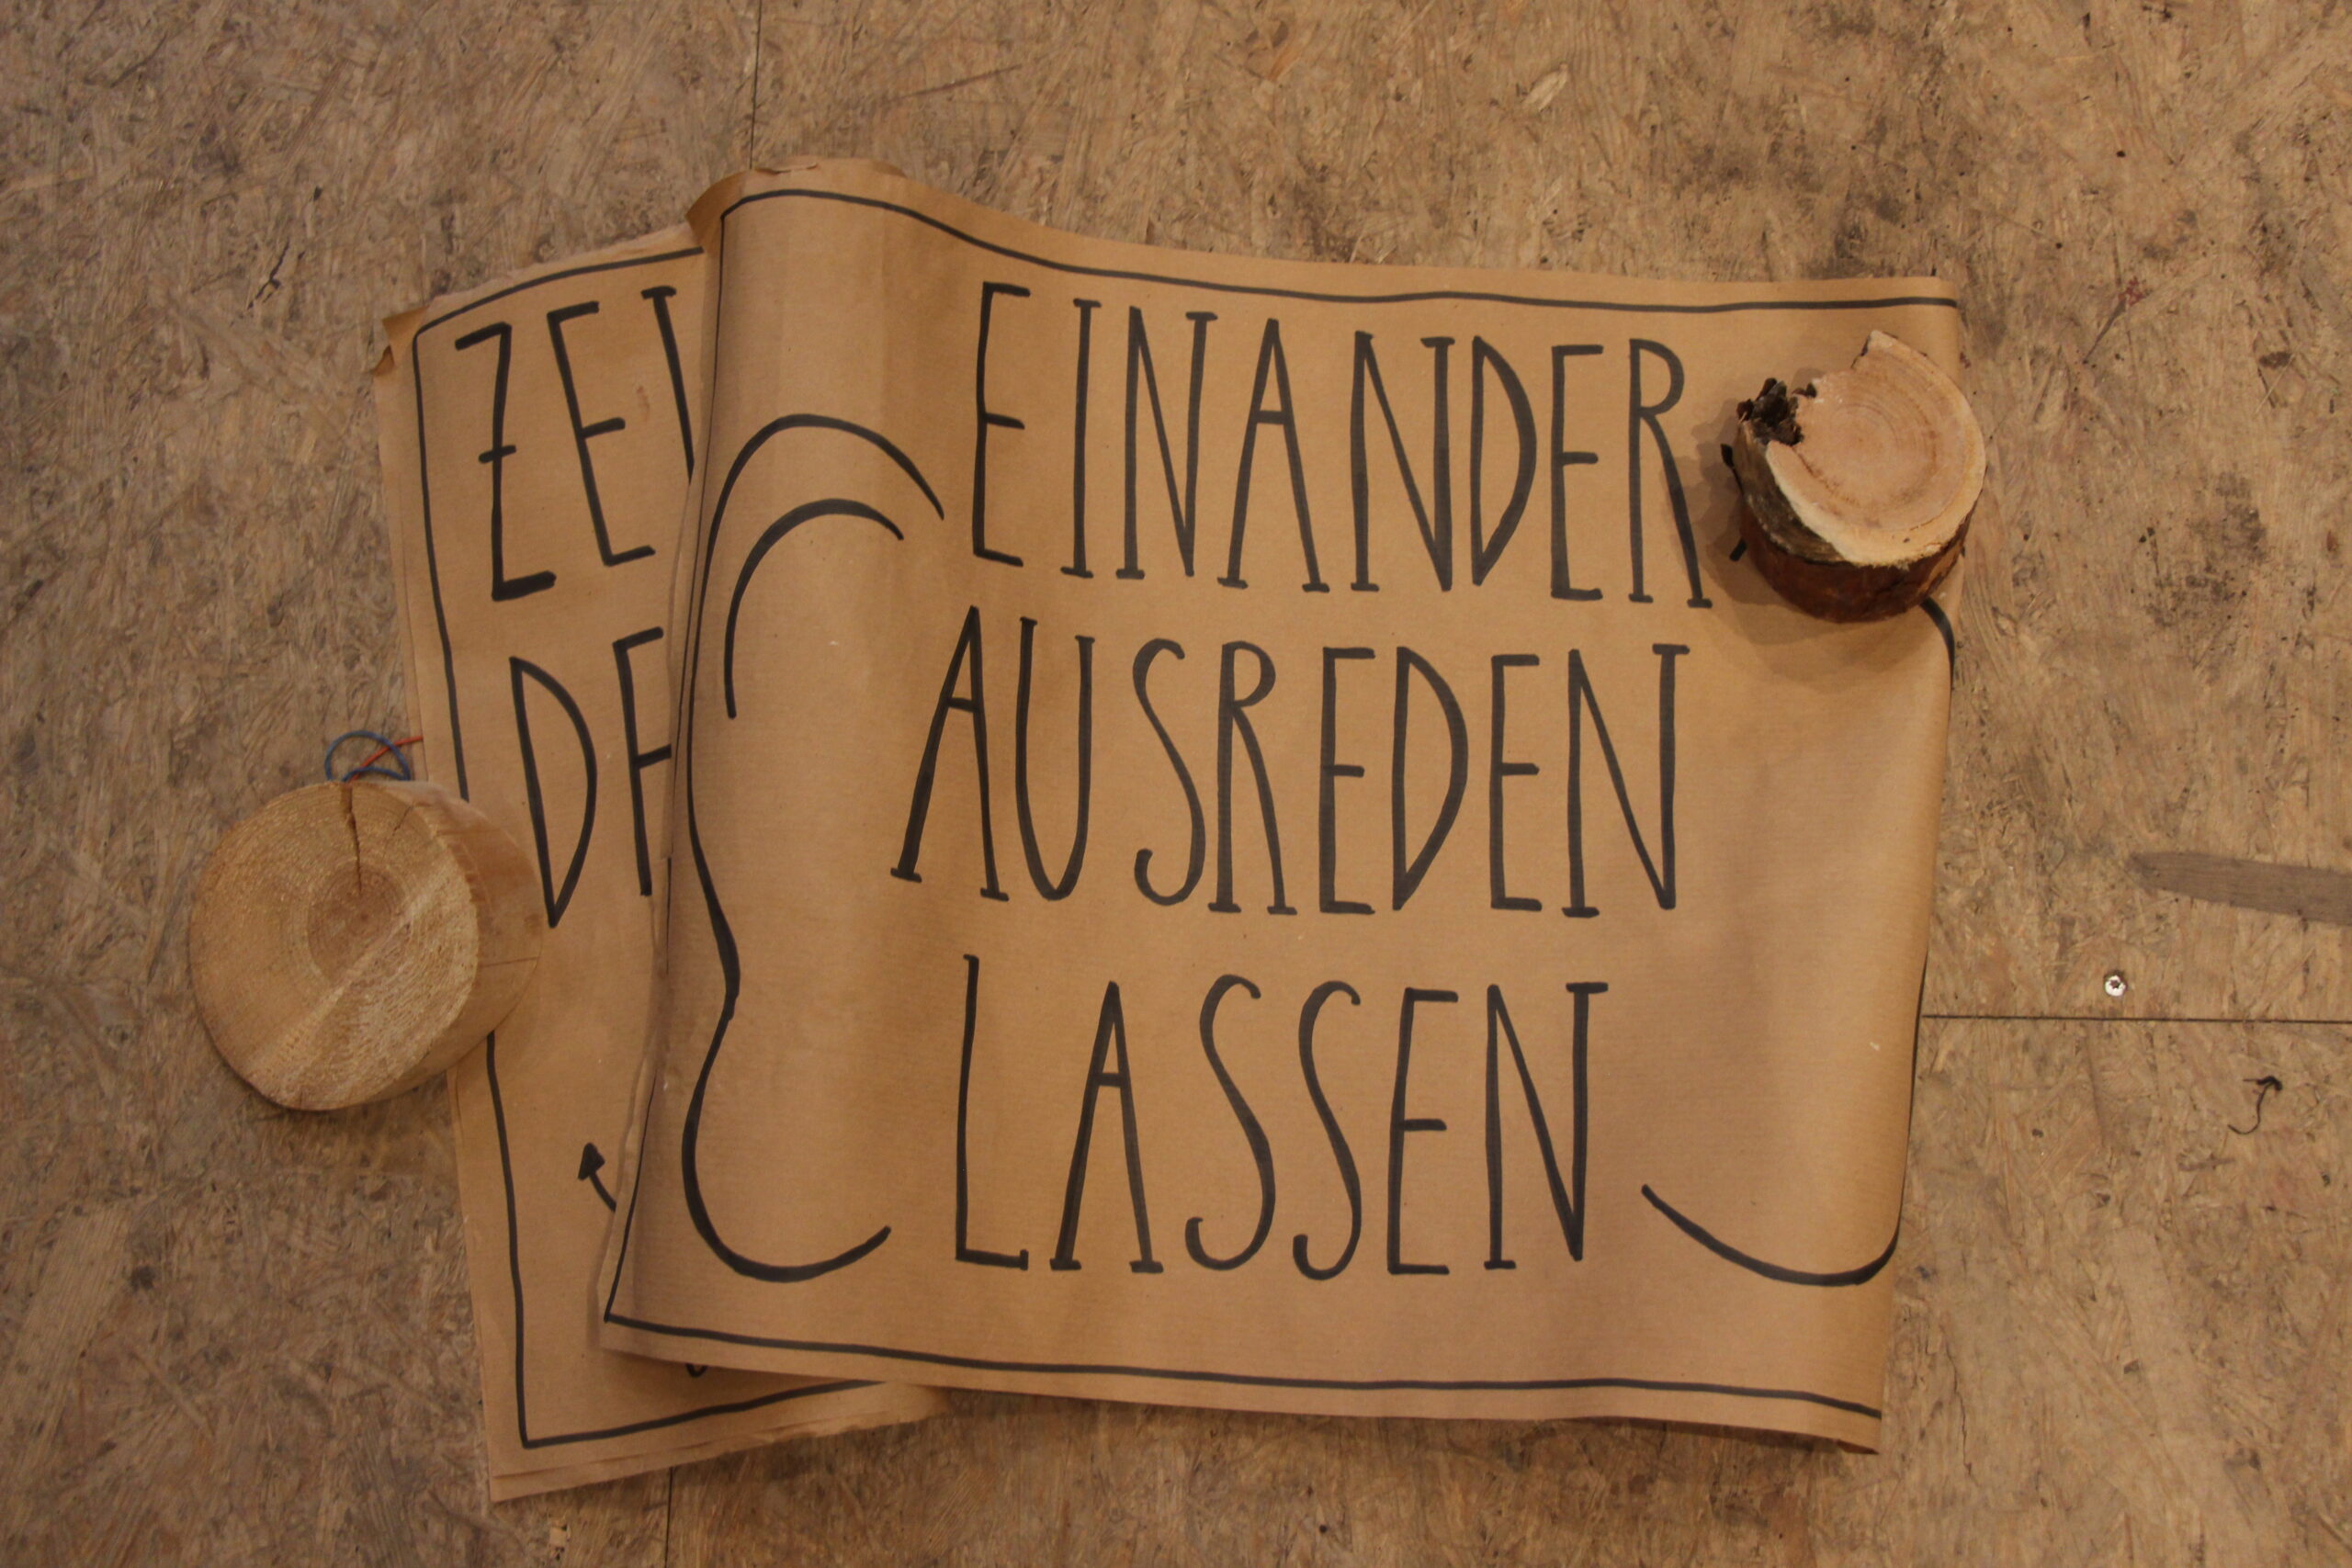 EINANDER
AUSREDEN
LASSEN